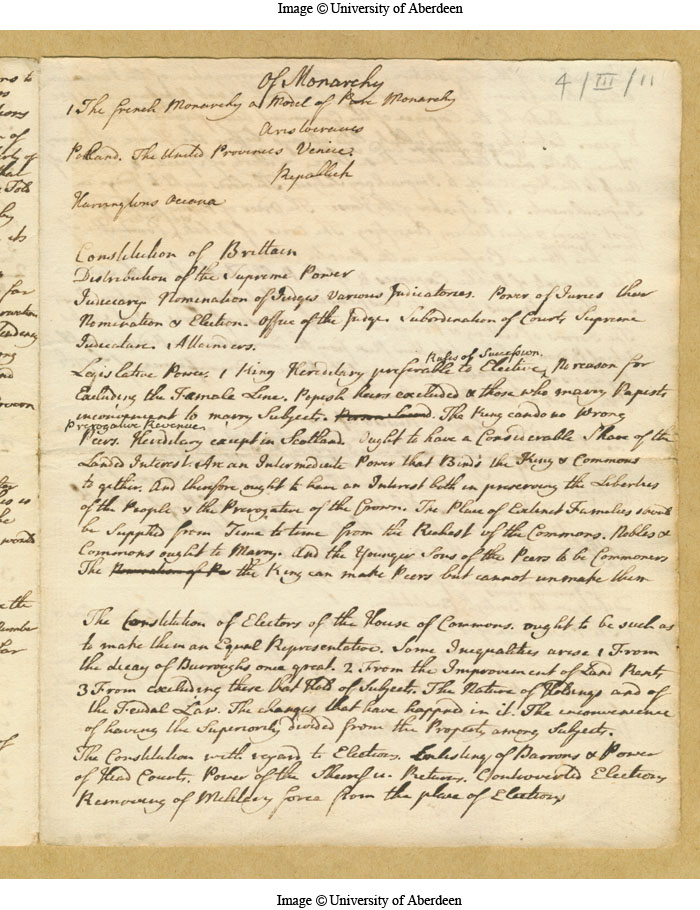 Image © University of Aberdeen
4/III/11
Of Monarchy
1 The french Monarchy a Model of Monarchy
Aristocracies
Poland. The United Provinces Venice.
Republick
Harringtons Oceana
Constitution of Brittain
Distribution of the Supreme Power
Judiciary. Nomination of Judges Various Judicatories. Power of Juries their
Nomination & Election. Office of the Judge. Subordination of Courts Supreme
Judicature. Attainders.
Rules of Succession.
Legislative Power. 1 King Hereditary preferable to Elective, No reason for
Excluding the Female Line. Popish heirs excluded & those who marry Papists
inconvenient to marry Subjects. The King can do no Wrong
Prerogative Revenue
Peers. Hereditary except in Scotland. Ought to have a Considerable Share of the
Landed Interest. Are an Intermediate Power that Binds the King & Commons
to gether. And therefore ought to have an Interest both in preserving the Liberties
of the People & the Prerogative of the Crown. The Place of Extinct Families should
be Supplied from Time to time from the Richest of the Commons. Nobles &
Commons ought to Marry. And the Younger Sons of the Peers to be Commoners
The the King can make Peers but cannot unmake them
The Constitution of Electors of the House of Commons. ought to be such as
to make them an Equal Representative. Some Inequalities arise 1 From
the decay of Burroughs once great. 2 From the Improvement of Land Rents
3 From excluding these that Hold of Subjects. The Nature of Holdings and of
the Feudal Law. The changes that have happed in it. The inconvenience
of having the Superiority divided from the Property among Subjects.
The Constitution with regard to Elections. Enlisting of Barrons & Power
of Head Courts. Power of the Sheriff in Returns. Controverted Elections
Removing of Military force from the place of Elections
Image © University of Aberdeen